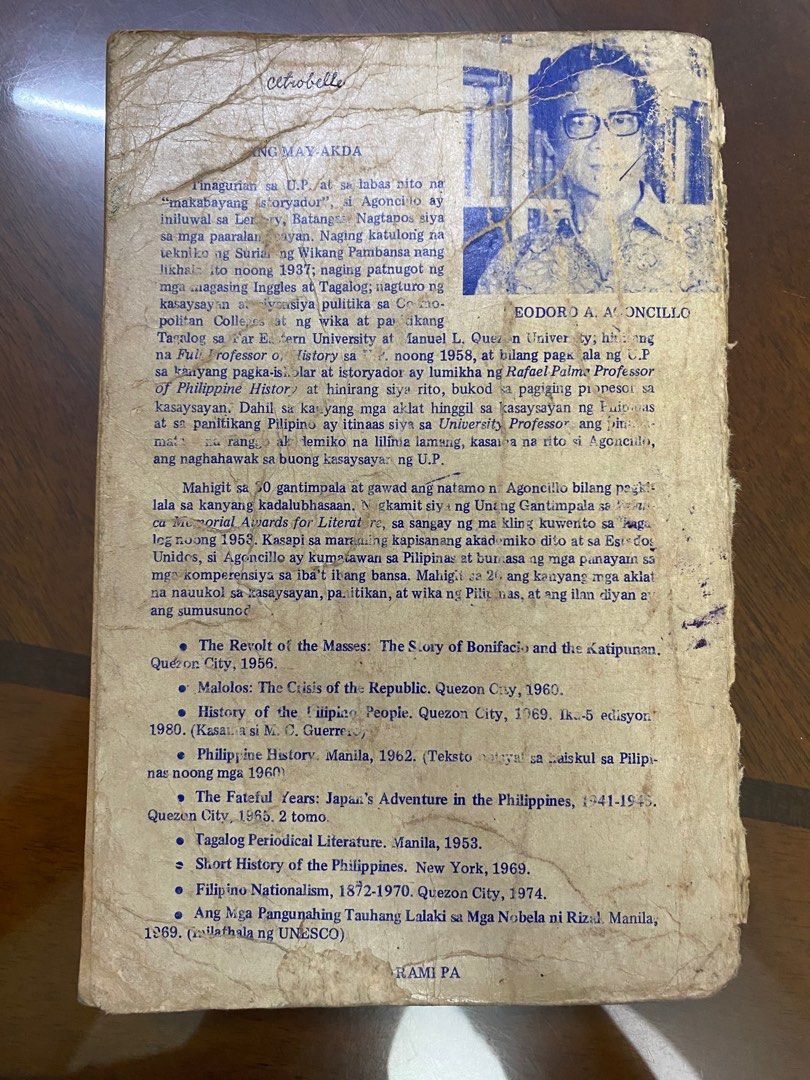 cetrobelle
ANG MAY-AKDA
Tinagurian sa U.P. at sa labas nito na
"makabayang istoryador", si Agoncillo ay
iniluwal sa Lemery, Batangas. Nagtapos siya
sa mga paaralang bayan. Naging katulong na
tekniko ng Surian ng Wikang Pambansa nang
likhain ito noong 1937; naging patnugot ng
mga magasing Inggles at Tagalog; nagturo ng
kasaysayan at siyensiya pulitika sa Cosmo-
politan Colleges at ng wika at panitikang
TEODORO A. AGONCILLO
Tagalog sa Far Eastern University at Manuel L. Quezon University; hinirang
na Full Professor of History sa U.P. noong 1958, at bilang pagkilala ng U.P
sa kanyang pagka-iskolar at istoryador ay lumikha ng Rafael Palma Professor
of Philippine History at hinirang siya rito, bukod sa pagiging propesor sa
kasaysayan. Dahil sa kanyang mga aklat hinggil sa kasaysayan ng Pilipinas
at sa panitikang Pilipino ay itinaas siya sa University Professor, ang
na ranggo akademiko na lilima lamang, kasama na rito si Agoncillo,
ang naghahawak sa buong kasaysayan ng U.P.
Mahigit sa 30 gantimpala at gawad ang natamo ni Agoncillo bilang pagki-
lala sa kanyang kadalubhasaan. Nagkamit siya ng Unang Gantimpala sa Palan-
ca Memorial Awards for Literature, sa sangay ng maikling kuwento sa Taga-
log noong 1953. Kasapi sa maraming kapisanang akademiko dito at sa Estados
Unidos, si Agoncillo ay kumatawan sa Pilipinas at bumasa ng mga panayam sa
mga komperensiya sa iba't ibang bansa. Mahigit sa 20 ang kanyang mga aklat
na nauukol sa kasaysayan, panitikan, at wika ng Pilipinas, at ang ilan diyan ay
ang sumusunod
• The Revolt of the Masses: The Story of Bonifacio and the Katipunan.
Quezon City, 1956.
• Malolos: The Crisis of the Republic. Quezon City, 1960.
• History of the Filipino People. Quezon City, 1969. Ika-5 edisyon
1980. (Kasama si M. C. Guerrero)
• Philippine History. Manila, 1962. (Teksto opisyal sa haiskul sa Pilipi-
nas noong mga 1960)
• The Fateful Years: Japan's Adventure in the Philippines, 1941-1945.
Quezon City, 1965. 2 tomo.
• Tagalog Periodical Literature. Manila, 1953.
• Short History of the Philippines. New York, 1969.
• Filipino Nationalism, 1872-1970. Quezon City, 1974.
• Ang Mga Pangunahing Tauhang Lalaki sa Mga Nobela ni Rizal. Manila,
1969. (Inilathala ng UNESCO)
RAMI PA